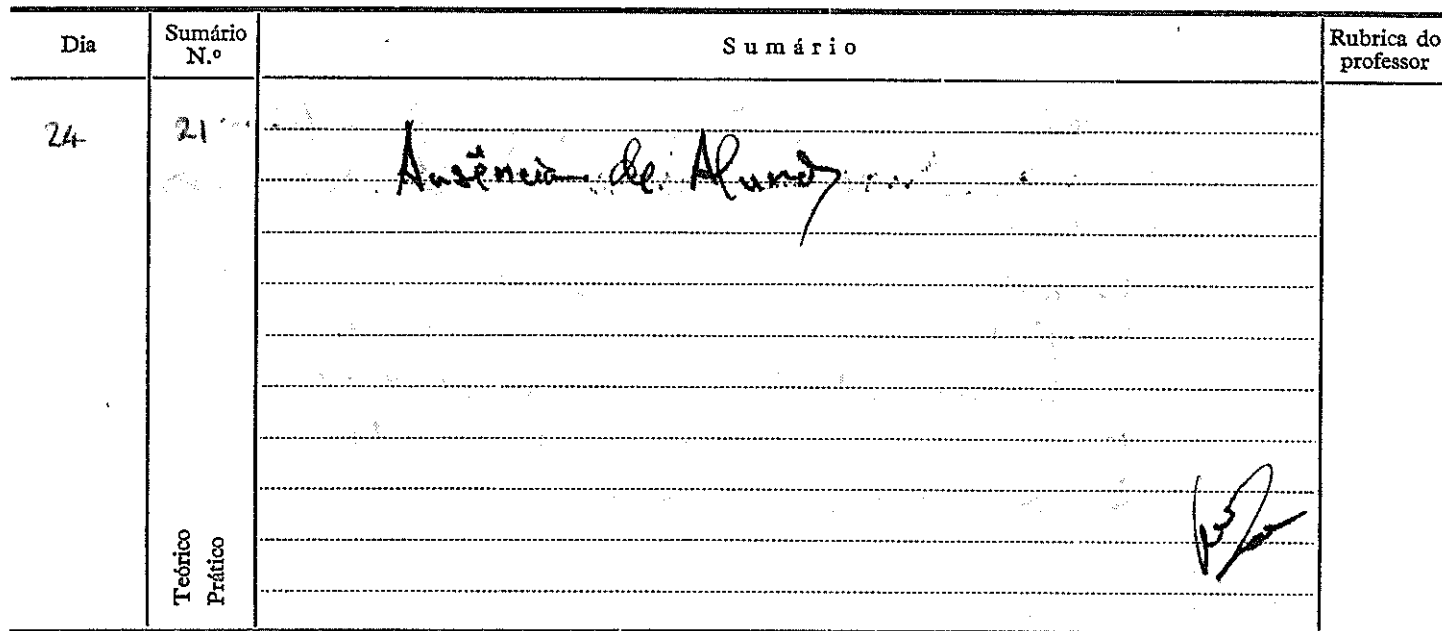 Dia
Sumário N.º
Sumário
Rubrica do professor
24
21
Ausência de Alunos
Teórico
Prático